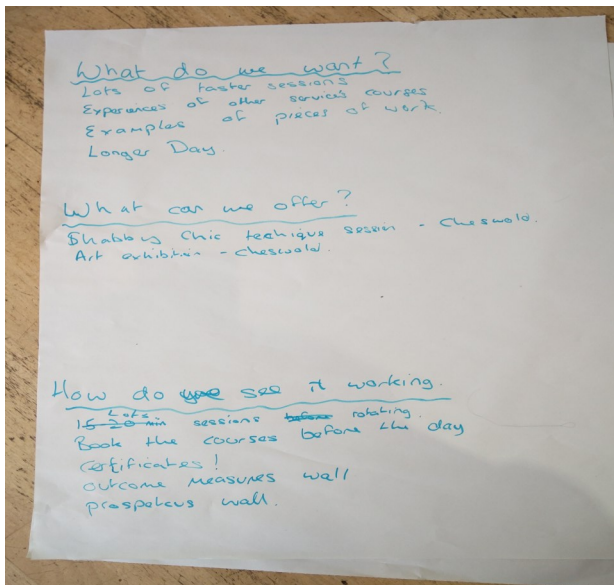 What do we want?
Lots of taster sessions
Experiences of other services courses
Examples of pieces of work.
Longer Day.
What can we offer?
Shabby Chic techique session - Cheswold.
Art exhibition - Cheswold.
How do we see it working.
Lots
15-20 min sessions before rotating.
Book the courses before the day
Certificates!
outcome measures wall
prospetus wall.